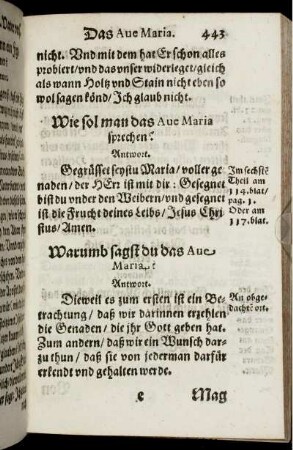 Das Aue Maria. 443
nicht. Vnd mit dem hat Er schon alles
probiert/vnd das vnser widerleget/gleich
als wann Holtz vnd Stain nicht eben so
wol sagen könd/Ich glaub nicht.
Wie sol man das Aue Maria
sprechen?
Antwort.
Gegrüsset seystu Maria/voller ge
naden/der HErr ist mit dir: Gesegnet
bist du vnder den Weibern/vnd gesegnet
ist die Frucht deines Leibs/Jesus Chri
stus/Amen.
Im sechstē
Theil am
114.blat/
pag. 1.
Oder am
117.blat.
Warumb sagst du das Aue
Maria?
Antwort.
Dieweil es zum ersten ist ein Be
trachung/daß wir darinnen erzehlen
die Genaden/die jhr Gott geben hat.
Zum andern/daß wir ein Wunsch dar-
zu thun/daß sie von jederman darfür
erkendt vnd gehalten werde.
An obge-
dachtē ort.
e Mag